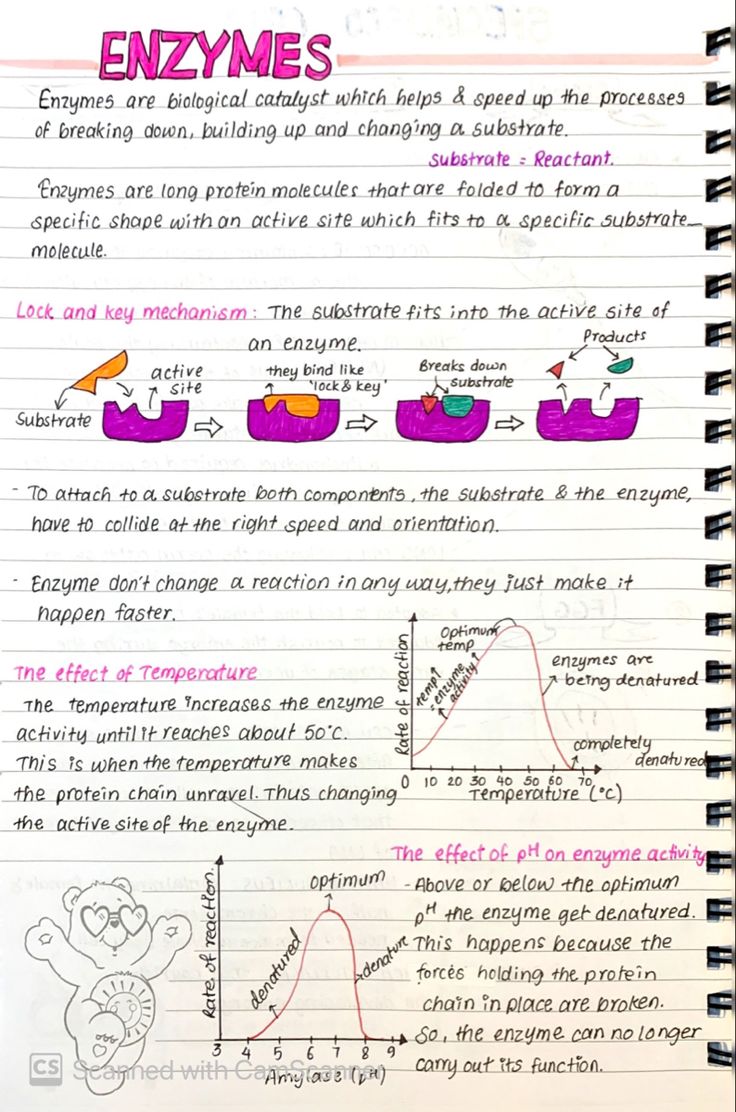 ENZYMES
Enzymes are biological catalyst which helps & speed up the processes
of breaking down, building up and changing a substrate.
substrate = Reactant.
Enzymes are long protein molecules that are folded to form a
specific shape with an active site which fits to a specific substrate
molecule.
Lock and key mechanism: The substrate fits into the active site of
an enzyme.
Products
active
site
they bind like
'lock & key'
Breaks down
substrate
Substrate
- To attach to a substrate both components, the substrate & the enzyme,
have to collide at the right speed and orientation.
- Enzyme don't change a reaction in any way, they just make it
happen faster.
Rate of reaction
Optimum
temp
temp↑
= enzyme
activity↑
enzymes are
being denatured
completely
denatured
0 10 20 30 40 50 60 70
Temperature (°C)
The effect of Temperature
The temperature increases the enzyme
activity until it reaches about 50°C.
This is when the temperature makes
the protein chain unravel. Thus changing
the active site of the enzyme.
Rate of reaction.
optimum
denatured
denature
3 4 5 6 7 8 9
Amylase (pH)
The effect of pH on enzyme activity
- Above or below the optimum
pH the enzyme get denatured.
This happens because the
forces holding the protein
chain in place are broken.
So, the enzyme can no longer
carry out its function.
CS Scanned with CamScanner